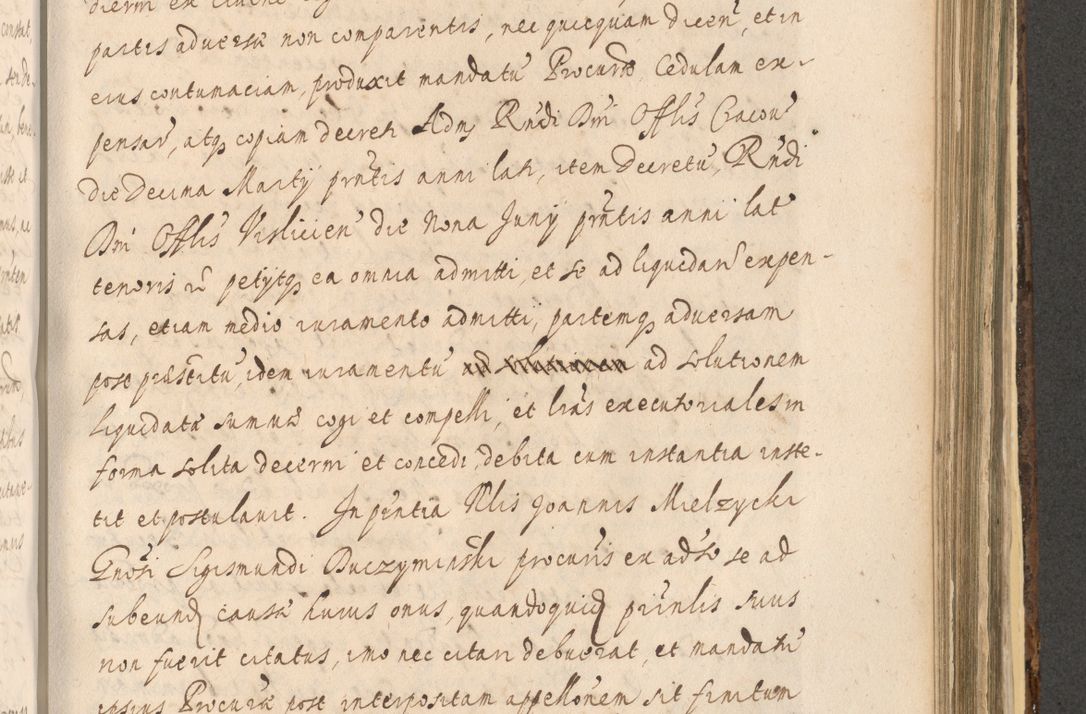 partis adversæ non comparentis, nec quicquam dicen̄, et in
eius contumaciam, produxit mandatū Procurrō, Cedulam ex-
pensar̄, atq₃ copiam decreti Adm̄ Rn̄di Dn̄i Offlīs Cracov̄
die Decima Martij prn̄tis anni lati, item Decretū Rn̄di
Dn̄i Offlīs Vislicien̄ die Nona Junij prn̄tis anni lat
tenoris petytq₃ ea omnia admitti, et se ad liquidan̄ expen-
sas, etiam medio iuramento admitti, partemq₃ adversam
post præstitū idem iuramentū ad solutionem
liquidatæ summæ cogi et compelli, et lrās executoriales in
forma solita decerni et concedi, debita cum instantia inste-
tit et postulavit. In pn̄tia Nlis Joannis Mielzycki
Gnōsi Sigismundi Buczyminski procuris ex adso se ad
subeund causæ huius onus, quandoquid prīnlis suus
non fuerit citatus, imo nec citari debuerat, et mandati
ipsius Procuræ post interpositam appellōnem sit finitum